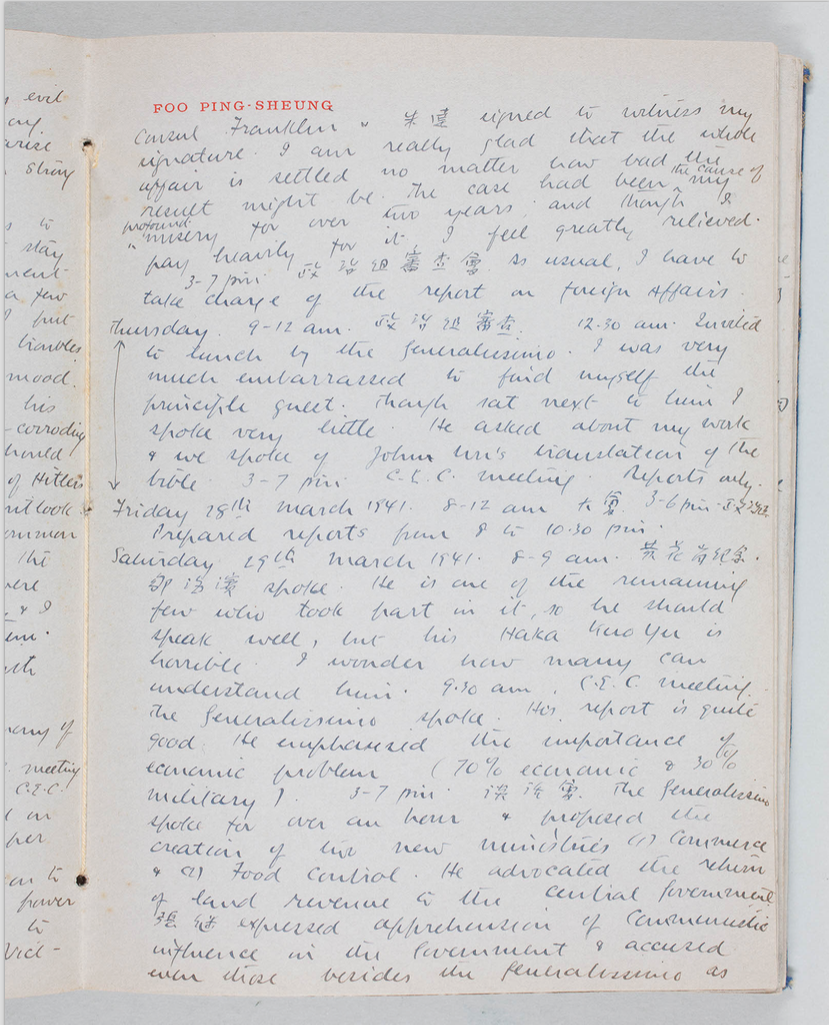 evil
any
arise
Shing
s to
stay
ment
a few
I put
troubles
mood.
his
-corroding
hould
of Hitler
outlook.
ommon
the
were
& I
em.
uth
eny of
. meeting
C.E.C.
l on
per
on to
power
to
Vice-
FOO PING-SHEUNG
Consul Franklin & 朱 signed to witness my
signature. I am really glad that the whole
affair is settled no matter how bad the
result might be. The case had been the cause of my
profound misery for over two years, and though I
pay heavily for it, I feel greatly relieved.
3-7 p.m. 政治組審查會. As usual, I have to
take charge of the report on Foreign Affairs.
Thursday. 9-12 am. 政治組審查. 12.30 am. Invited
to lunch by the Generalissimo. I was very
much embarrassed to find myself the
principle guest. Though sat next to him I
spoke very little. He asked about my work
& we spoke of John Wu's translation of the
bible. 3-7 p.m. C.E.C. meeting. Reports only.
Friday 28th March 1941. 8-12 am 大會. 3-6 p.m.
Prepared reports from 8 to 10.30 p.m.
Saturday 29th March 1941. 8-9 am. 黃花岗紀念.
鄒 spoke. He is one of the remaining
few who took part in it, so he should
speak well, but his Haka Kuo Yu is
horrible. I wonder how many can
understand him. 9.30 am. C.E.C. meeting.
The Generalissimo spoke. His report is quite
good. He emphasized the importance of
economic problem (70% economic & 30%
military). 3-7 p.m. 談話會. The Generalissimo
spoke for over an hour & proposed the
creation of two new ministries (1) Commerce
& (2) Food Control. He advocated the return
of land revenue to the Central Government.
張繼 expressed apprehension of Communistic
influence in the Government & accused
even those besides the Generalissimo as